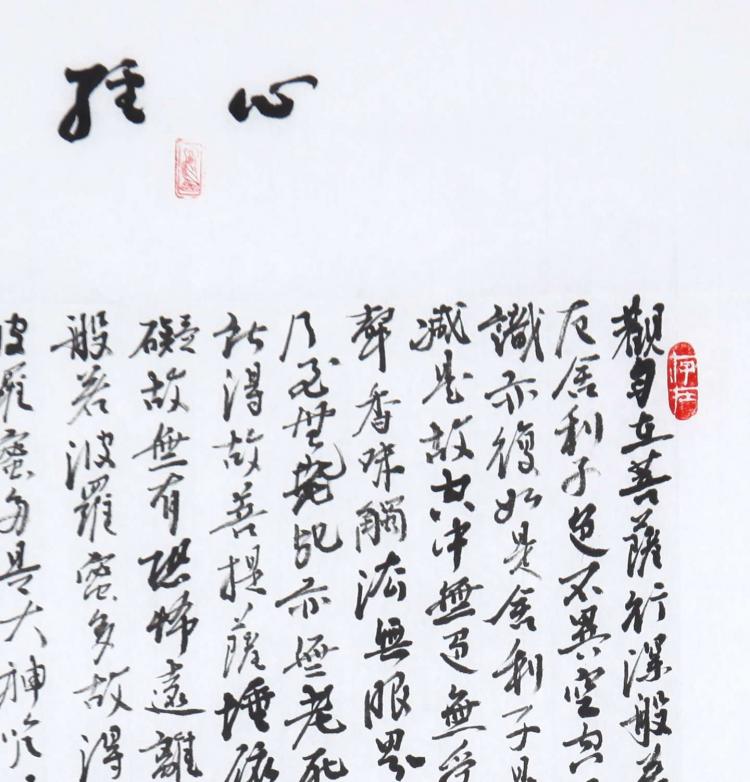 心經
觀自在菩薩行深般若
厄舍利子色不異空空
識亦復如是舍利子是
減是故空中無色無受
聲香味觸法無眼界
乃至無老死亦無老死
以無所得故菩提薩埵依
礙故無有恐怖遠離
般若波羅蜜多故得
波羅蜜多是大神咒
存在